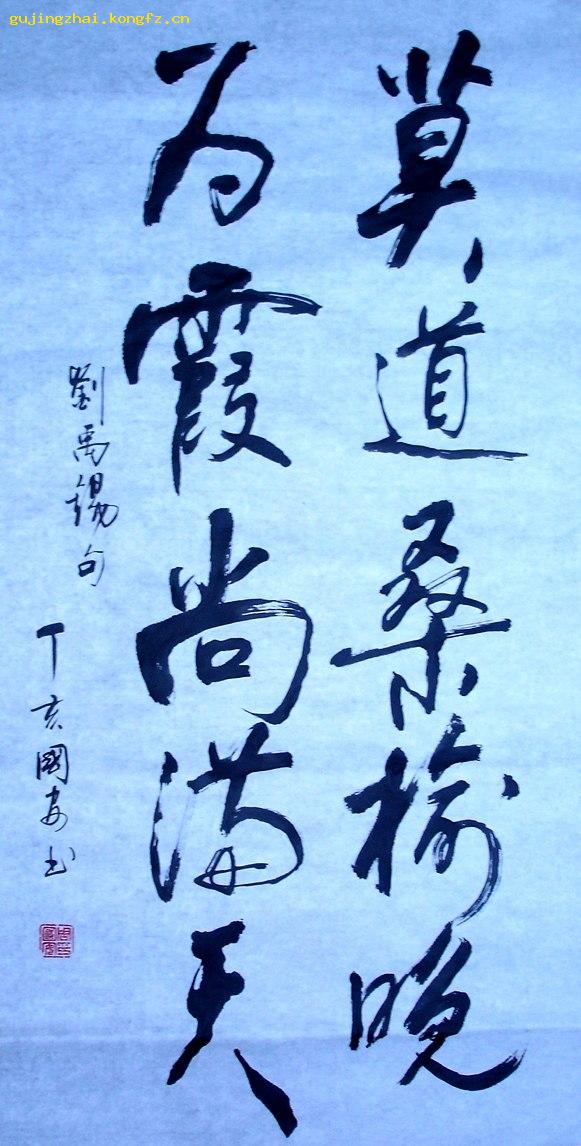 gujingzhai.kongfz.cn
莫道桑榆晚
为霞尚满天
劉禹锡句
丁亥國安书